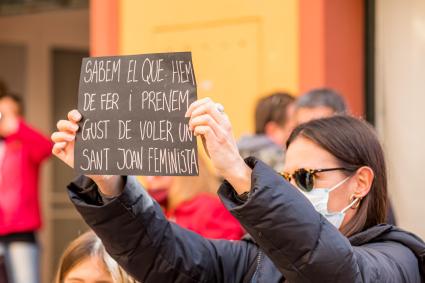 SABEM EL QUE HEM
DE FER I PRENEM
GUST DE VOLER UN
SANT JOAN FEMINISTA